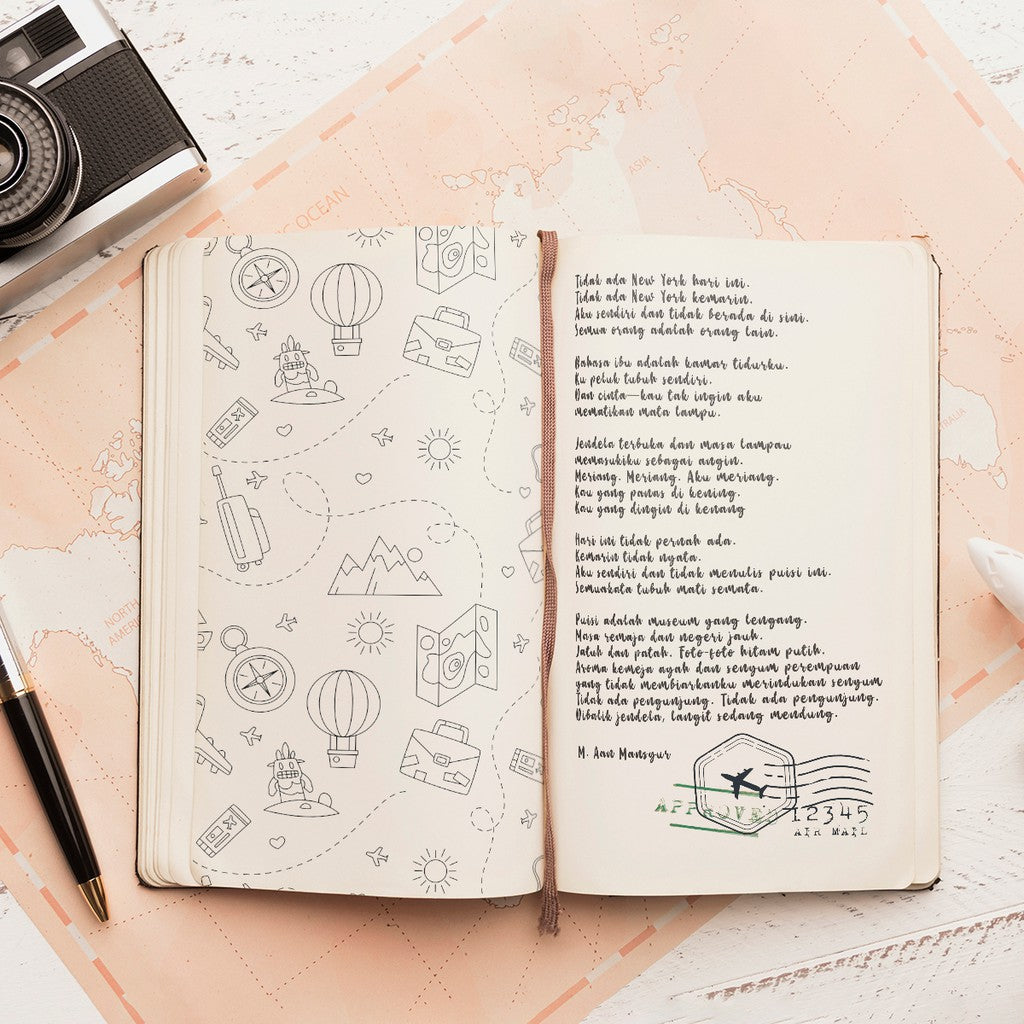 OCEAN
ASIA
NORTH
AMERI
Tidak ada New York hari ini.
Tidak ada New York kemarin.
Aku sendiri dan tidak berada di sini.
Semua orang adalah orang lain.
Bahasa ibu adalah kamar tidurku.
Ku peluk tubuh sendiri.
Dan cinta—kau tak ingin aku
mematikan mata lampu.
Jendela terbuka dan masa lampau
memasukiku sebagai angin.
Meriang. Meriang. Aku meriang.
Kau yang panas di kening.
Kau yang dingin di kenang
Hari ini tidak pernah ada.
Kemarin tidak nyata.
Aku sendiri dan tidak menulis puisi ini.
Semuakata tubuh mati semata.
Puisi adalah museum yang lengang.
Masa remaja dan negeri jauh.
Jatuh dan patah. Foto-foto hitam putih.
Aroma kemeja ayah dan senyum perempuan
yang tidak membiarkanku merindukan senyum
Tidak ada pengunjung. Tidak ada pengunjung.
Dibalik jendela, langit sedang mendung.
M. Aan Mansyur
APPROVED
12345
AIR MAIL